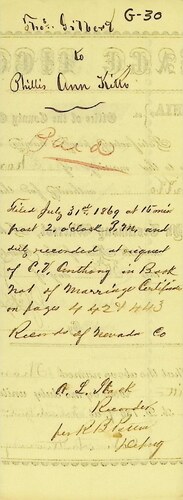 G-30
Thos. Gilbert
to
Phillis Ann Kills
Paid
Filed July 31st 1869 at 15 min
past 2, o'clock P.M, and
duly recorded at request
of C. T. Anthony in Book
No 1 of Marriage Certificates
on pages 442 & 443
Records of Nevada Co
A. L. Stack
Recorder
per K B
Deputy